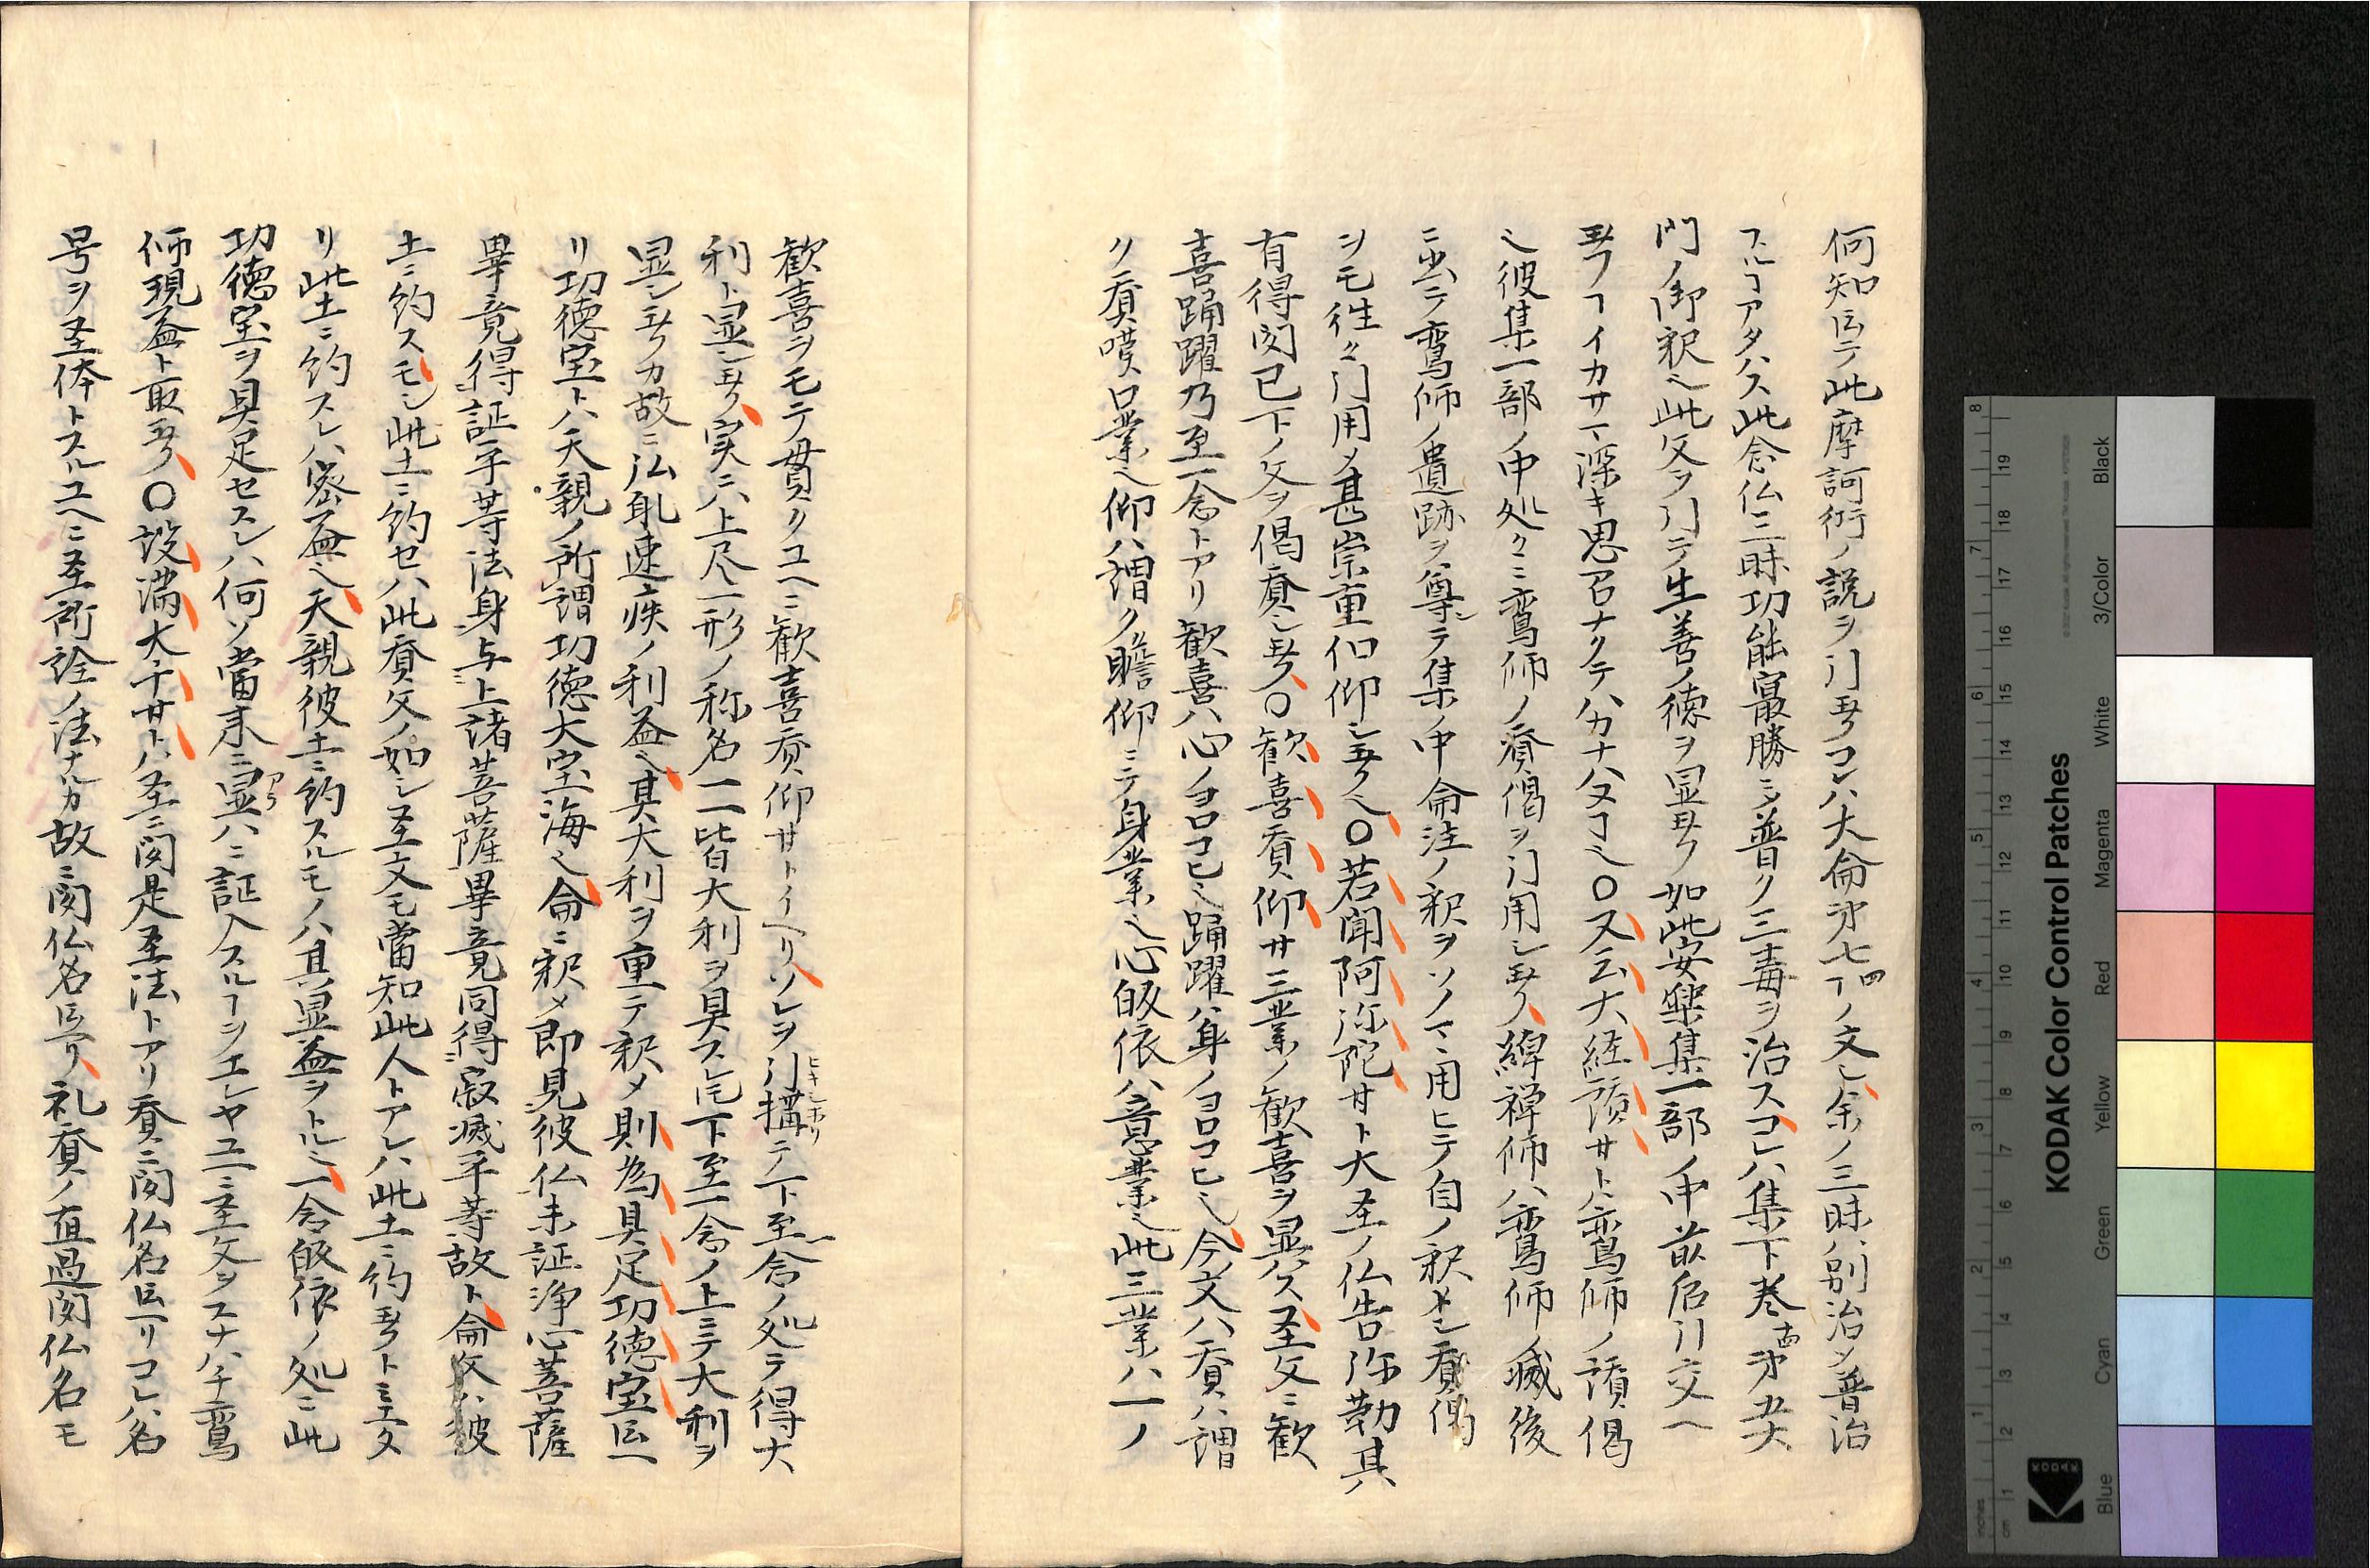 何知ニテ此摩訶衍ノ説ヲ引玉フコレハ大論第七四丁ノ文也余ノ三昧ハ別治ソ普治
スルヿアタハス此念仏三昧功能最勝ニシテ普ク三毒ヲ治スコレハ集下巻 第五大
門ノ御釈也此文ヲ引テ生善ノ徳ヲ显玉フ如此安楽集一部ノ中前后引文ヘ
玉フヿイカサマ深キ思召ナクテハカナハヌヿ也〇又云大経讃 サトハ鸞師ノ讃偈
也彼集一部ノ中処々ニ鸞師ノ賛偈ヲ引用シ玉フ綽禅師ハ鸞師ノ滅後
ニ出テ鸞師ノ遺跡ヲ尊テ集ノ中論注ノ釈ヲソノマヽ用ヒテ自ノ釈トシ賛偈
ヲモ往々引用メ甚崇重仰シ玉フ也〇若聞阿弥陀サト大圣ノ仏告弥勒其
有得闻已下ノ文ヲ偈賛シ玉フ〇歓喜賛仰サ三業ノ歓喜ヲ显ハス圣文ニ歓
喜踊躍乃至一念トアリ歓喜ハ心ノヨロコヒ也踊躍ハ身ノヨロコヒ也今文ハ賛ハ謂
ク賛嘆口業也仰ハ謂ク瞻仰ニテ身業也心皈依ハ意業也此三業ハ一ノ
歓喜ヲモテ貫クユヘニ歓喜賛仰サトイヘリソレヲ引搆テ下至一念ノ処テ得大
利ト显シ玉フ実ニハ上尽一形ノ称名一一皆大利ヲ具スレ𪜈下至一念ノ上ニテ大利ヲ
显シ玉フカ故ニ仏乘速疾ノ利益也其大利ヲ重テ釈メ則為具足功德宝ト云
リ功德宝トハ天親ノ所謂功徳大宝海也論ニ釈メ即見彼仏未証浄心菩薩
畢竟得証平等法身与上諸菩薩畢竟同得寂滅平等故ト論文ハ彼
土ニ約スモシ此土ニ約セハ此賛文ノ如シ圣文モ當知此人トアレハ此土ニ約玉フトミエタ
リ此土ニ約スレハ密益也天親彼土ニ約スルモノハ其显益ヲトル也一念皈依ノ処ニ此
功徳宝ヲ具足セスンハ何ソ當来ニ显ハニ証入スルヿヲエンヤユニ圣文ヲスナハチ鸞
师現益ト取玉フ〇設満大千サトハ圣ニ闻是圣法トアリ賛ニ闻仏名ト云リコレハ名
号ヲ圣体トスルユヘニ圣所詮ノ法ナルカ故ニ闻仏名ト云リ礼賛ノ直過闻仏名モ